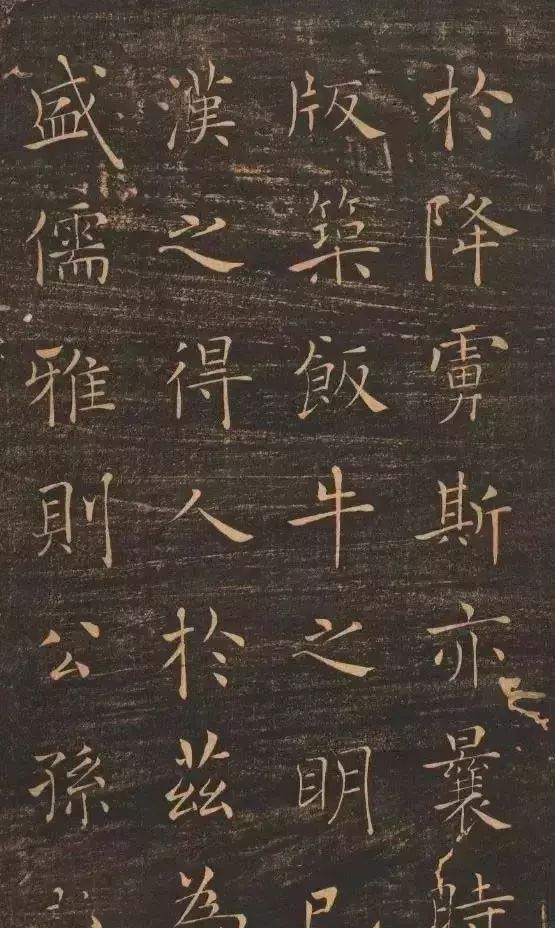 於降虜斯亦曩時
版築飯牛之明
漢之得人於茲為
盛儒雅則公孫